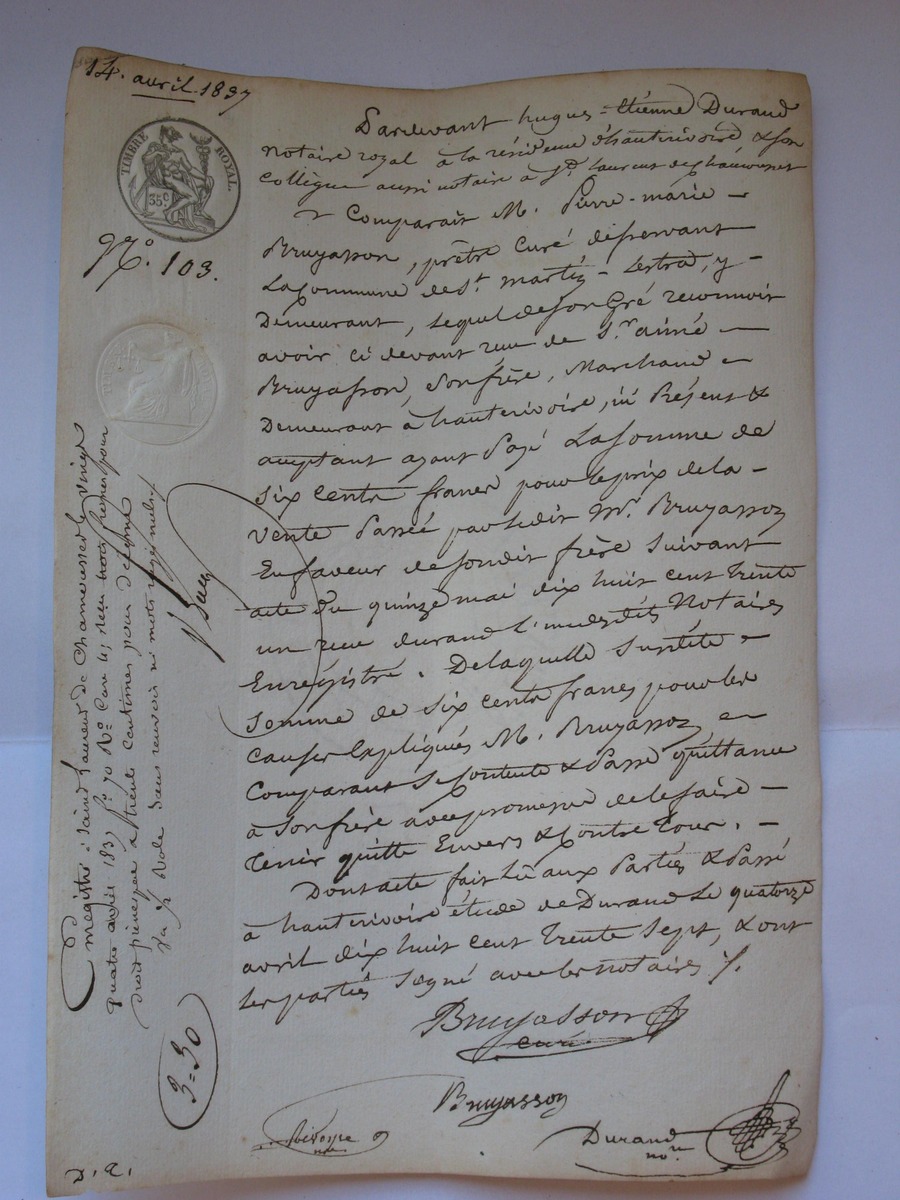 14. avril. 1837
TIMBRE ROYAL.
35 c.
N.º 103.
Pardevant hugues-Étienne Durand
notaire royal à la résidence d'hauterivoire & son
collègue aussi notaire à St. laurent de chamousset
Comparait M. Pierre-marie
Bruyasson, prêtre Curé desservant
La Commune de St. martin-Lestra, y
Demeurant, lequel de son Gré reconnoit
avoir ci devant reçu de Sr. aimé
Bruyasson, son frère, Marchand
Demeurant à hauterivoire, ici Présent &
acceptant ayant Payé La Somme de
Six Cents francs pour le prix de la
Vente Passée par ledit Mr. Bruyasson
En faveur de sondit frère Suivant
acte du quinze mai dix huit cent trente
un reçu durand l'un desdits Notaires
Enrégistré. De laquelle Susdite
Somme de six cents francs pour les
Causes Expliqués M. Bruyasson
Comparant Se Contente & Passe quittance
à Son frère avec promesse de le faire
tenir quitte Envers & Contre tous.
Dont acte fait lu aux Parties & Passé
à hauterivoire étude de Durand Le quatorze
avril dix huit cent trente Sept, & ont
les parties Signé avec les notaires
Bruyasson
curé
Bruyasson
Durand
nore.
Enregistré à Saint Laurent de Chamousset le vingt
quatre avril 1837 fo. 70 Ro. Case
droit principal & trente centimes pour décime
du Role sans renvois ni mots rayés nuls
3=30
D. Q.